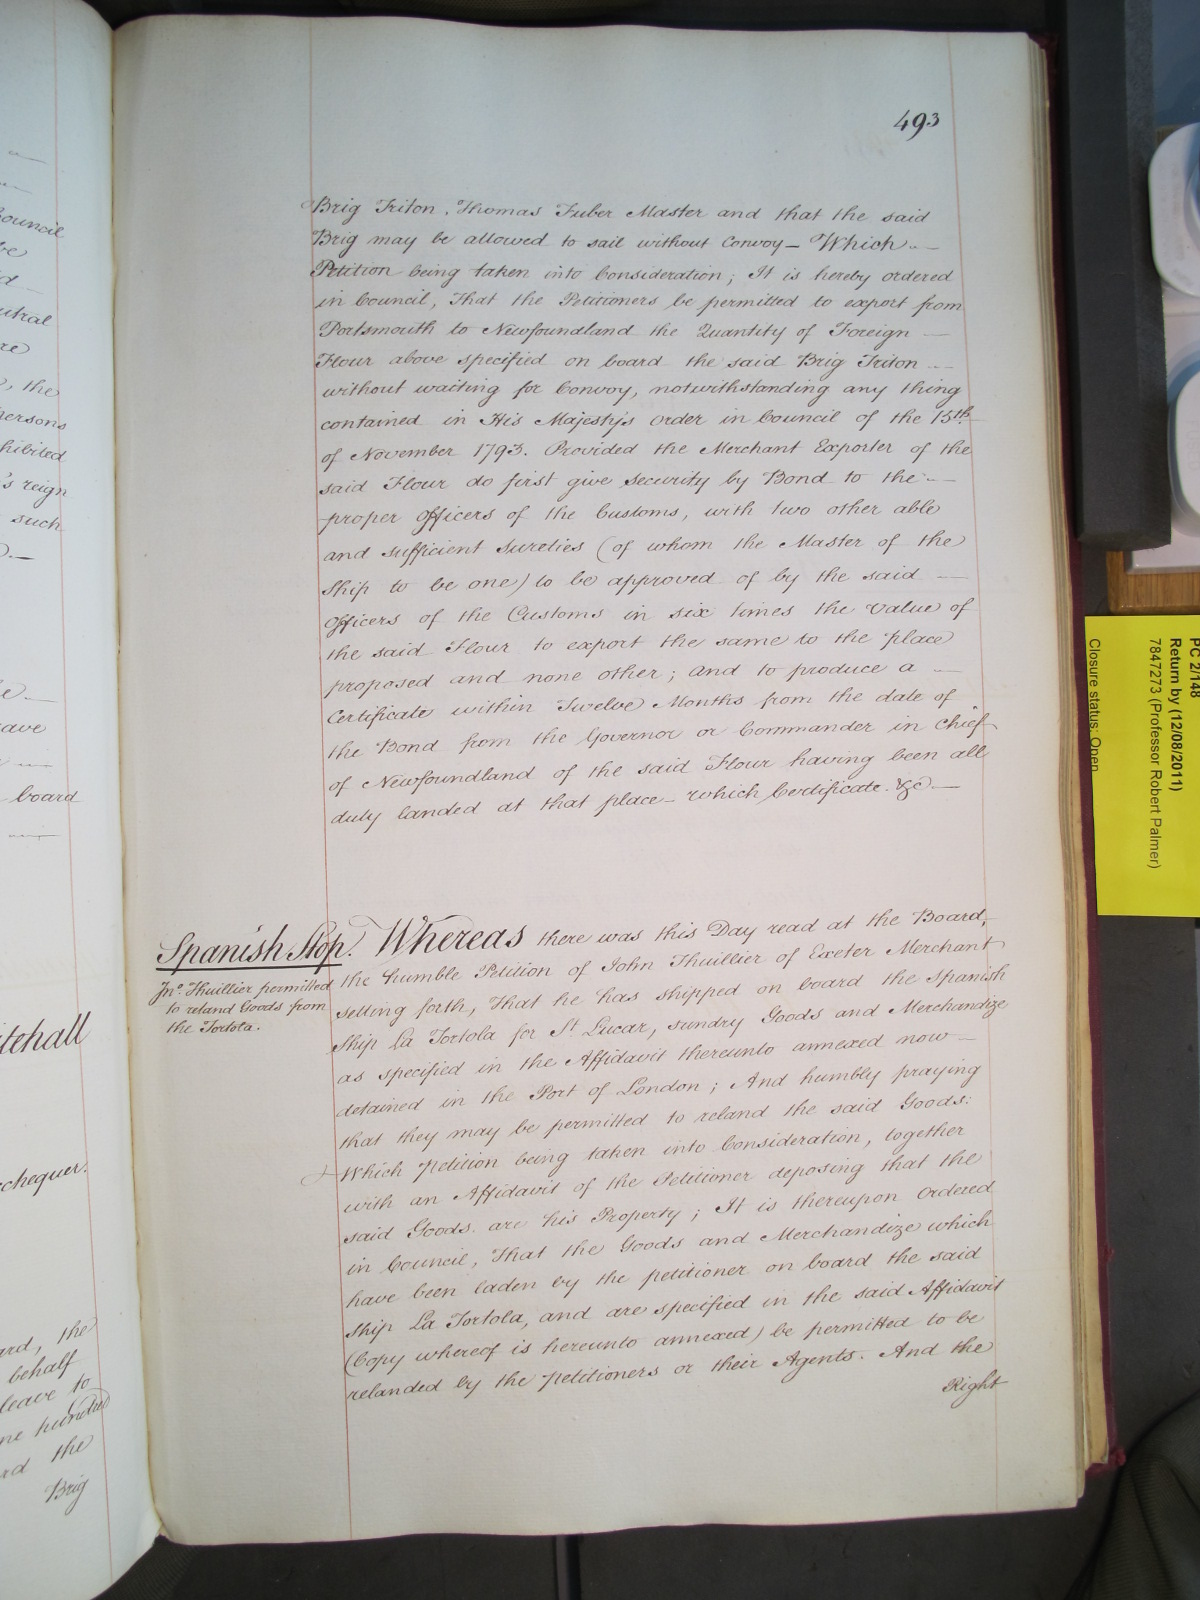 493
Brig Triton, Thomas Fuber Master and that the said
Brig may be allowed to sail without Convoy — Which —
Petition being taken into Consideration; It is hereby ordered
in Council, That the Petitioners be permitted to export from
Portsmouth to Newfoundland the Quantity of Foreign —
Flour above specified on board the said Brig Triton —
without waiting for Convoy, notwithstanding any thing
contained in His Majesty's Order in Council of the 15th
of November 1793. Provided the Merchant Exporter of the
said Flour do first give security by Bond to the —
proper Officers of the Customs, with two other able
and sufficient sureties (of whom the Master of the
Ship to be one) to be approved of by the said —
Officers of the Customs in six times the value of
the said Flour to export the same to the place
proposed and none other; and to produce a —
Certificate within Twelve Months from the date of
the Bond from the Governor or Commander in Chief
of Newfoundland of the said Flour having been all
duly landed at that place — which Certificate. &c —
Spanish Stop.
Jno. Thuillier permitted
to reland Goods from
the Tortola.
Whereas there was this Day read at the Board,
the humble Petition of John Thuillier of Exeter Merchant
setting forth, That he has shipped on board the Spanish
Ship La Tortola for St Lucar, sundry Goods and Merchandize
as specified in the Affidavit thereunto annexed now —
detained in the Port of London; And humbly praying
that they may be permitted to reland the said Goods:
Which petition being taken into Consideration, together
with an Affidavit of the Petitioner deposing that the
said Goods are his Property; It is thereupon Ordered
in Council, That the Goods and Merchandize which
have been laden by the petitioner on board the said
Ship La Tortola, and are specified in the said Affidavit
(Copy whereof is hereunto annexed) be permitted to be
relanded by the petitioners or their Agents. And the
Right
ouncil
the
persons
hibited
's reign
such
ave
board
itehall
chequer.
ard, the
behalf
leave to
ne hundred
rd the
Brig
PC 2/148
Return by (12/08/2011)
7847273 (Professor Robert Palmer)
Closure status: Open